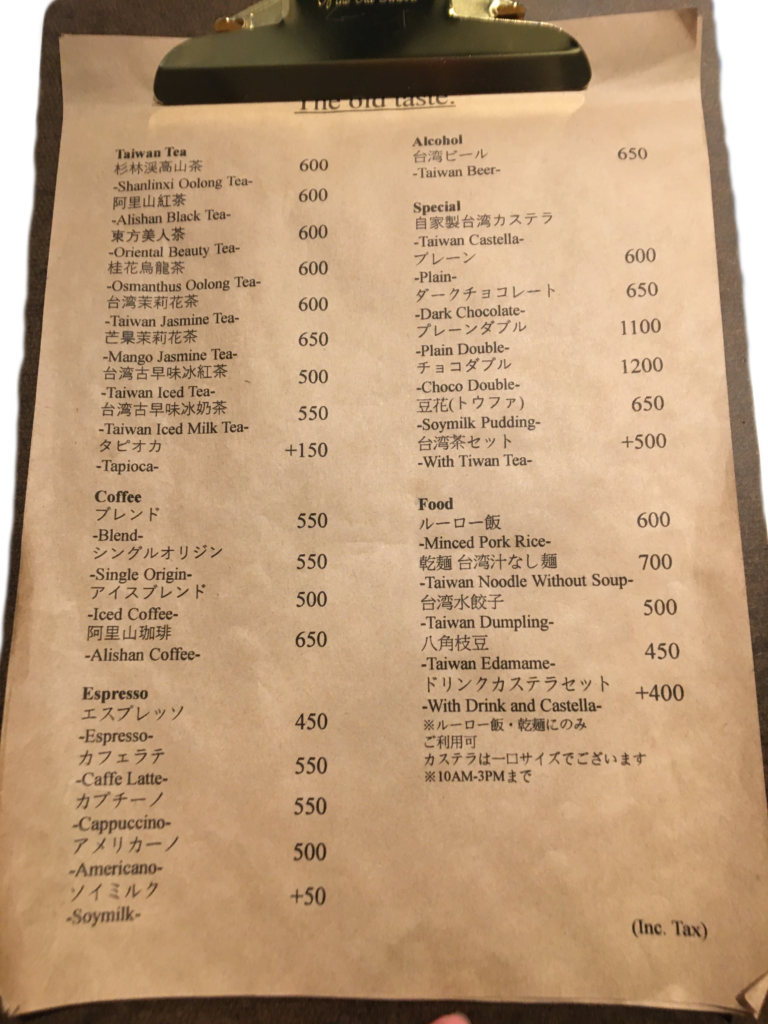 The old taste.
Taiwan Tea
杉林渓高山茶 600
-Shanlinxi Oolong Tea-
阿里山紅茶 600
-Alishan Black Tea-
東方美人茶 600
-Oriental Beauty Tea-
桂花烏龍茶 600
-Osmanthus Oolong Tea-
台湾茉莉花茶 600
-Taiwan Jasmine Tea-
芒果茉莉花茶 650
-Mango Jasmine Tea-
台湾古早味冰紅茶 500
-Taiwan Iced Tea-
台湾古早味冰奶茶 550
-Taiwan Iced Milk Tea-
タピオカ +150
-Tapioca-
Coffee
ブレンド 550
-Blend-
シングルオリジン 550
-Single Origin-
アイスブレンド 500
-Iced Coffee-
阿里山珈琲 650
-Alishan Coffee-
Espresso
エスプレッソ 450
-Espresso-
カフェラテ 550
-Caffe Latte-
カプチーノ 550
-Cappuccino-
アメリカーノ 500
-Americano-
ソイミルク +50
-Soymilk-
Alcohol
台湾ビール 650
-Taiwan Beer-
Special
自家製台湾カステラ
-Taiwan Castella-
プレーン 600
-Plain-
ダークチョコレート 650
-Dark Chocolate-
プレーンダブル 1100
-Plain Double-
チョコダブル 1200
-Choco Double-
豆花(トウファ) 650
-Soymilk Pudding-
台湾茶セット +500
-With Tiwan Tea-
Food
ルーロー飯 600
-Minced Pork Rice-
乾麺 台湾汁なし麺 700
-Taiwan Noodle Without Soup-
台湾水餃子 500
-Taiwan Dumpling-
八角枝豆 450
-Taiwan Edamame-
ドリンクカステラセット +400
-With Drink and Castella-
※ルーロー飯・乾麺にのみ
ご利用可
カステラは一口サイズでございます
※10AM-3PMまで
(Inc. Tax)